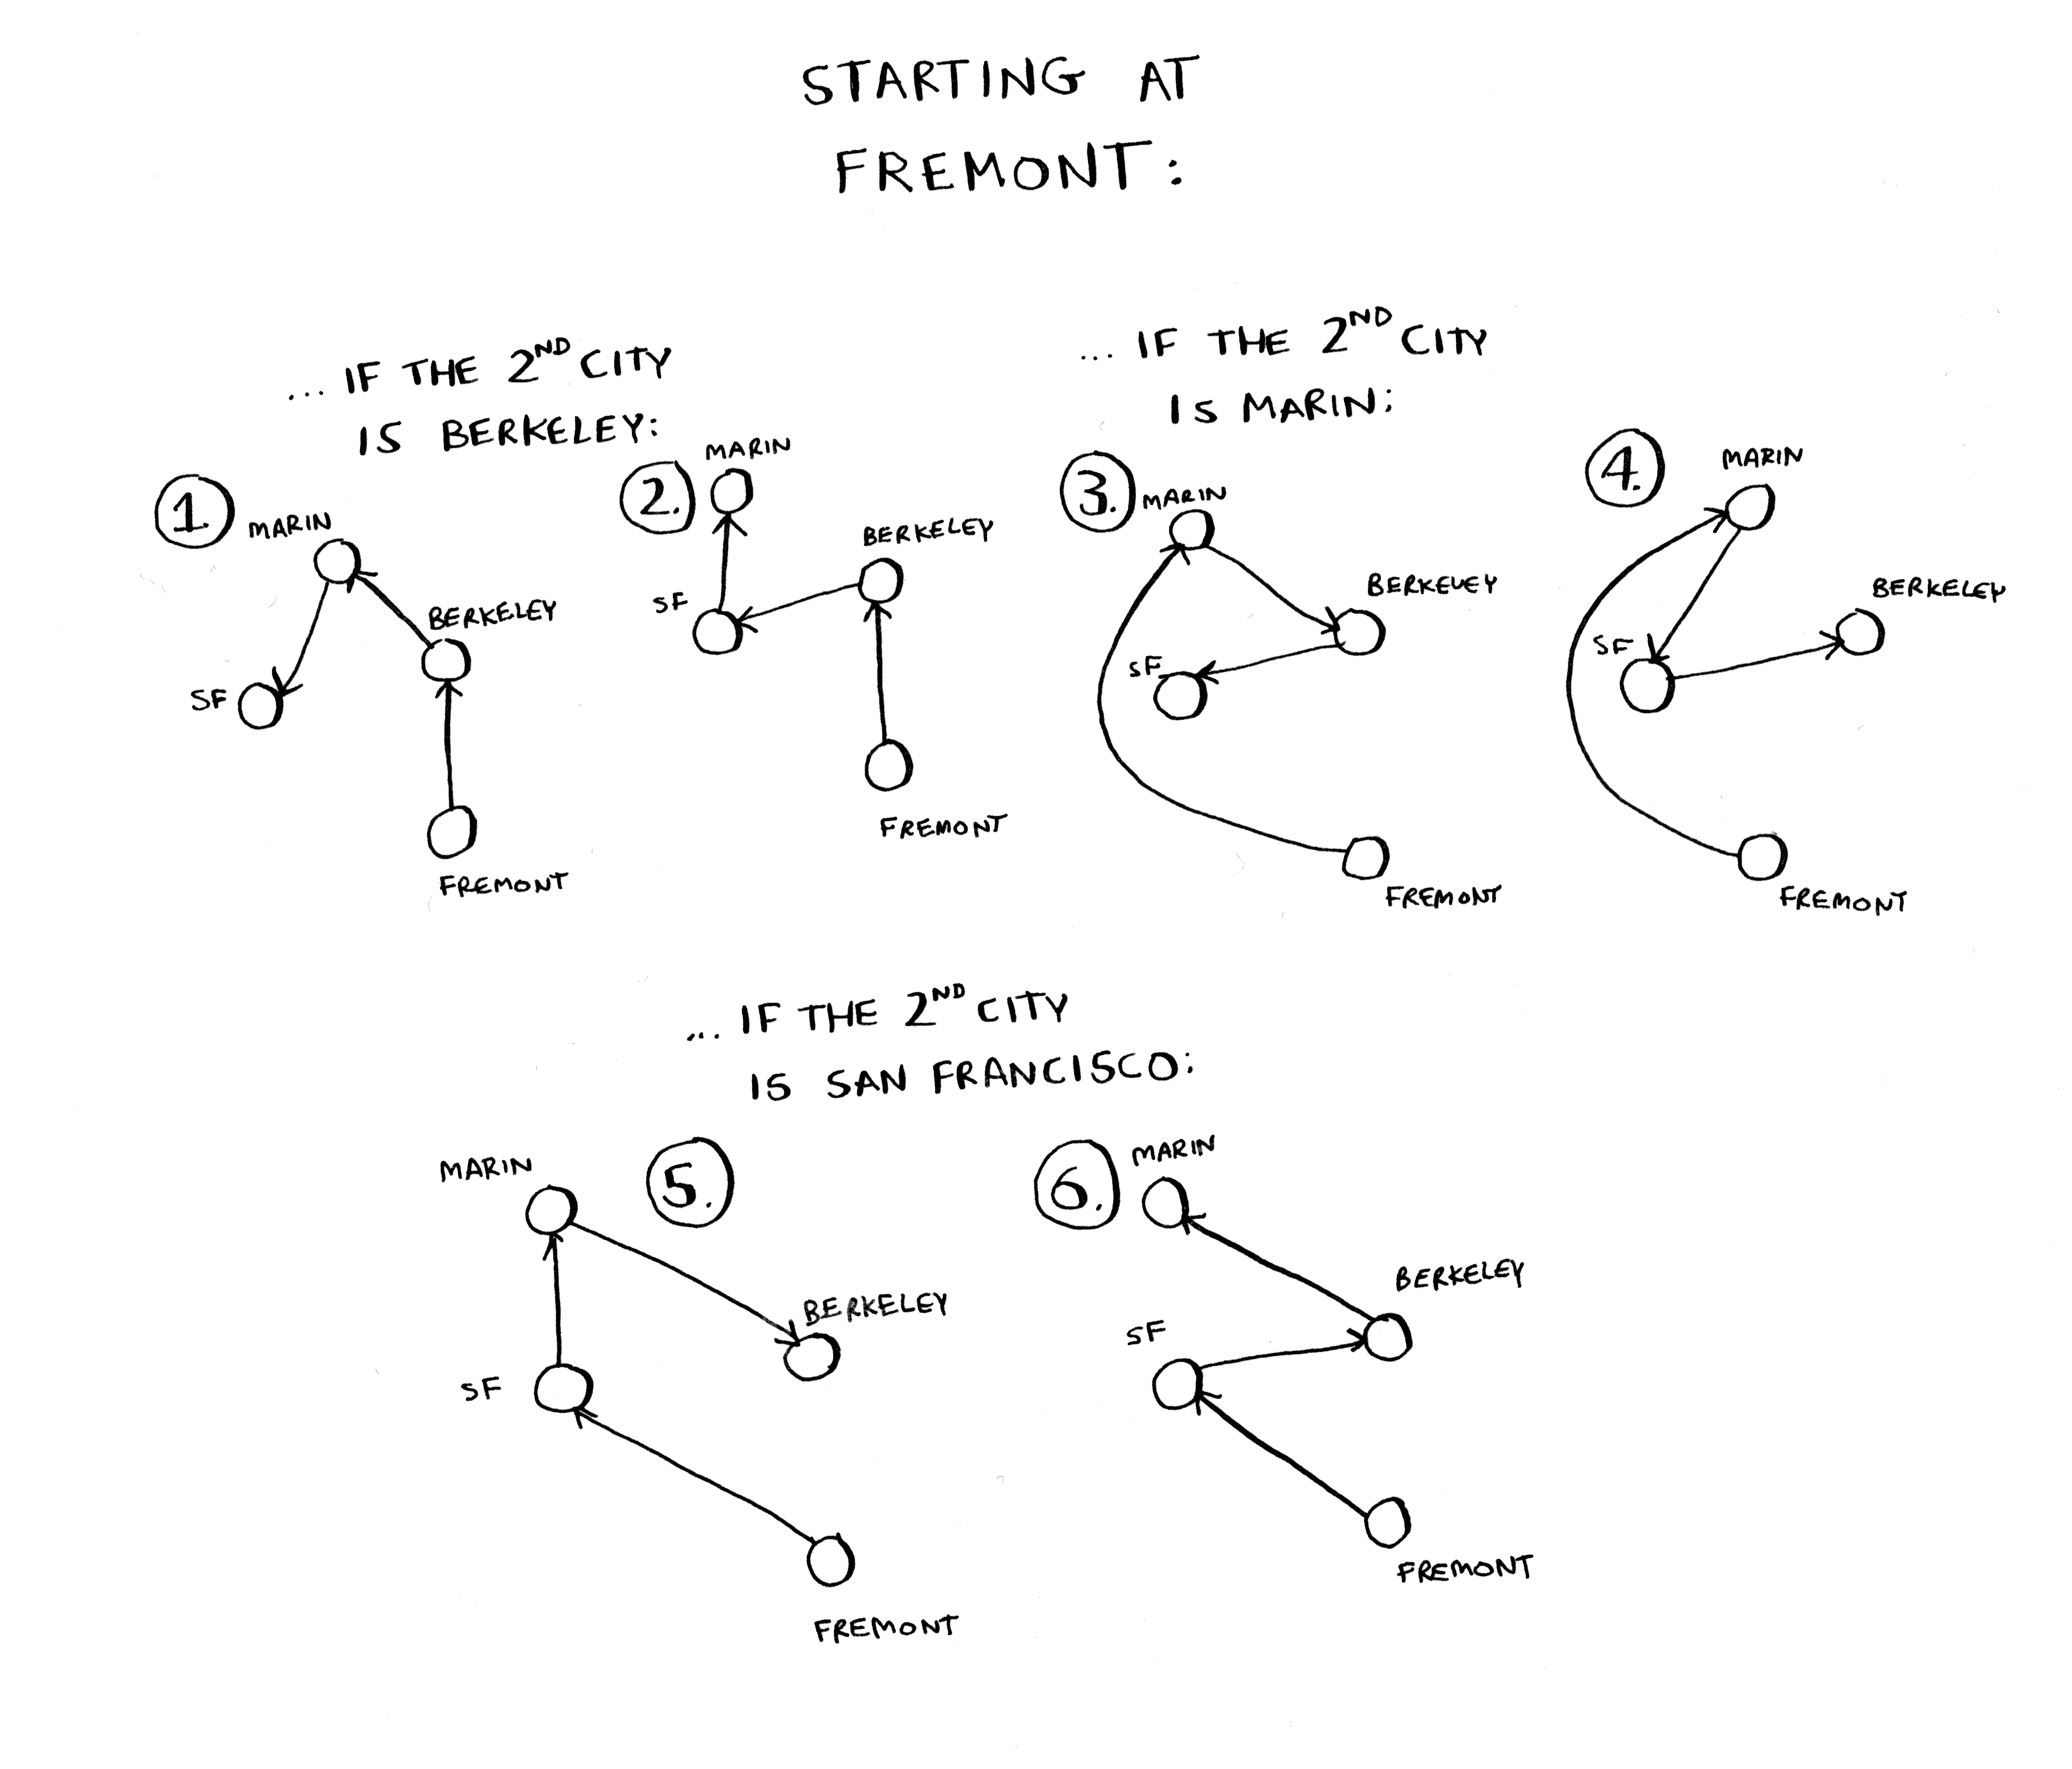 STARTING AT
FREMONT:
... IF THE 2ND CITY
IS BERKELEY:
1.
MARIN
BERKELEY
SF
FREMONT
2.
MARIN
BERKELEY
SF
FREMONT
... IF THE 2ND CITY
IS MARIN:
3.
MARIN
BERKELEY
SF
FREMONT
4.
MARIN
BERKELEY
SF
FREMONT
... IF THE 2ND CITY
IS SAN FRANCISCO:
5.
MARIN
BERKELEY
SF
FREMONT
6.
MARIN
BERKELEY
SF
FREMONT